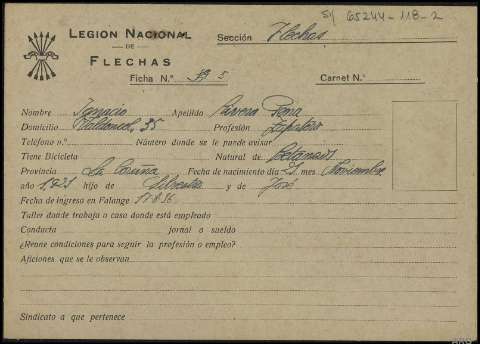 S/ 65244-118-2
LEGION NACIONAL
DE
FLECHAS
Sección Flechas
Ficha N.º
Carnet N.º
Nombre Ignacio Apellido Rivera Pena
Domicilio 35 Profesión Zapatero
Teléfono n.º Número donde se le puede avisar
Tiene Bicicleta Natural de Betanzos
Provincia La Coruña Fecha de nacimiento día 5 mes Noviembre
año 1921 hijo de Silverio y de José
Fecha de ingreso en Falange
Taller donde trabaja o casa donde está empleado
Conducta jornal o sueldo
¿Reune condiciones para seguir la profesión o empleo?
Aficiones que se le observan
Sindicato a que pertenece